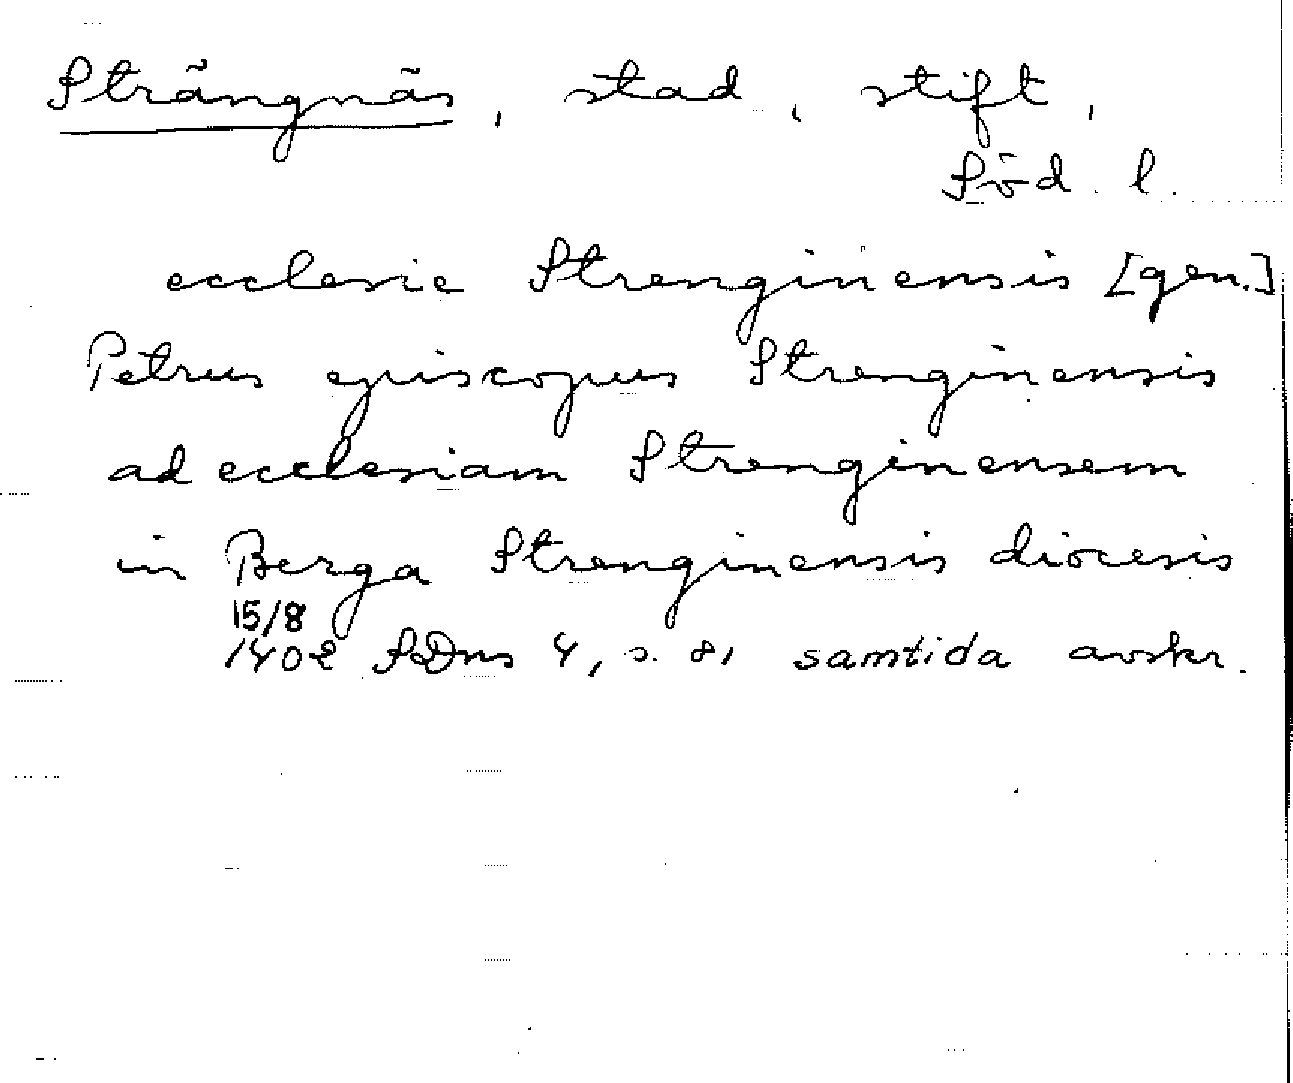 Strängnäs, stad, stift,
Söd. l.
ecclesie Strenginensis [gen.]
Petrus episcopus Strenginensis
ad ecclesiam Strenginensem
in Berga Strenginensis diocesis
15/8
1402 SDns 4, s. 81 samtida avskr.